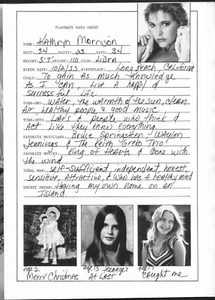 PLAYMATE DATA SHEET
NAME: Kathryn Morrison
BUST: 34 WAIST: 23 HIPS: 34
HEIGHT: 5'7" WEIGHT: 110 SIGN: LIBRA
BIRTH DATE: BIRTHPLACE: Long Beach, California
GOALS: To gain As much knowledge
As I can, Live A happy &
successful Life.
TURN-ONS: Water, the warmth of the sun, clean
Air, healthy people & good music
TURN-OFFS: Liars & people who think &
Act Like they know everything
FAVORITE MUSICIANS: Bruce Springsteen, Waylon
Jennings & The Keith Trio!
FAVORITE MOVIES: King of Hearts & Gone with
the wind
IDEAL MAN: self-sufficient, independent, honest,
sensitive, Attractive, & Who has A healthy mind
SECRET DREAM: Having my own Home on an
Island
Age 2 Age 13 teenager Age
Merry Christmas At Last Caught me